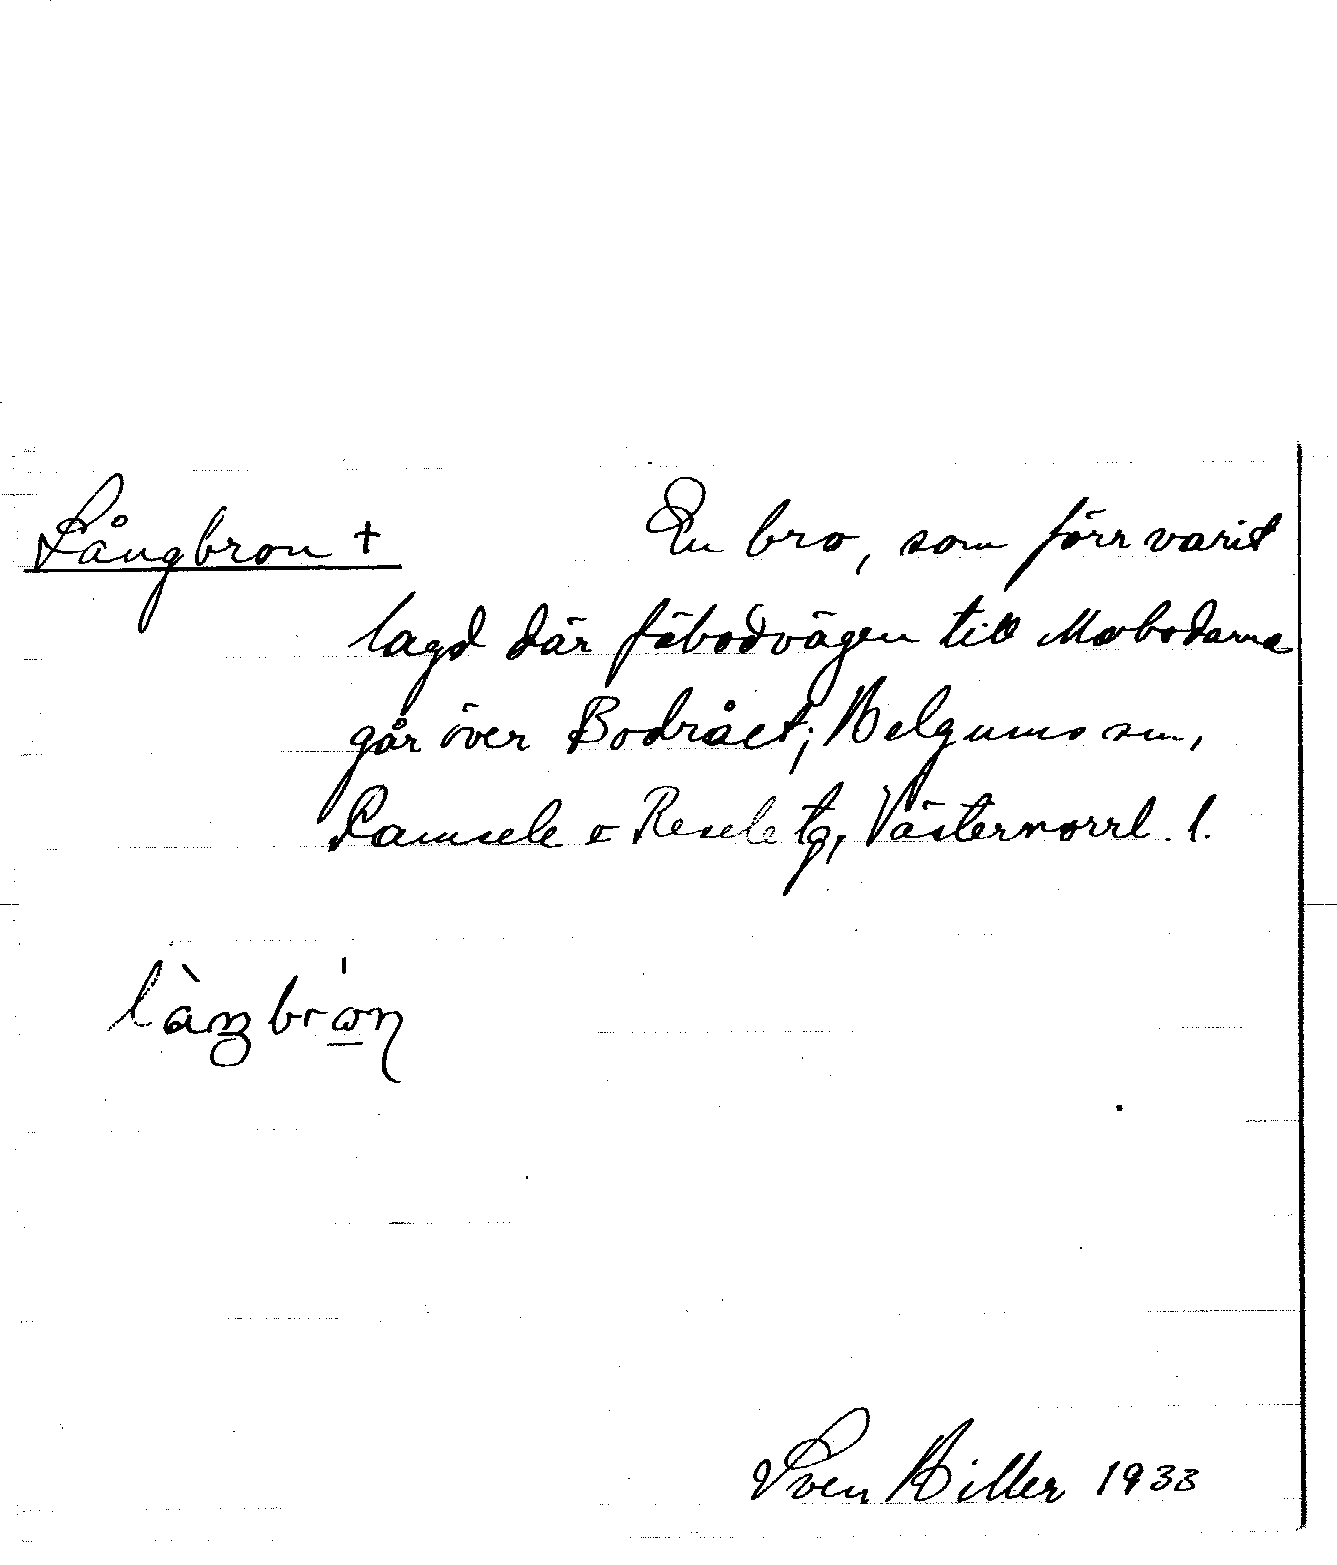 Långbron †
En bro, som förr varit
lagd där fäbodvägen till Mobodarna
går över Bodrået; Helgums sn,
Ramsele o Resele tg, Västernorrl. l.
làŋbrón
Sven Hiller 1933